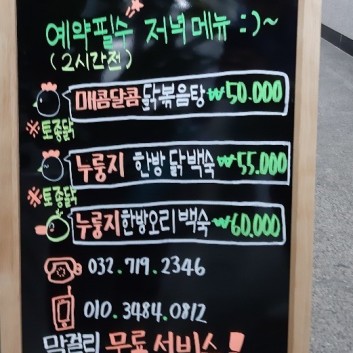 예약필수 저녁메뉴 :)~
(2시간전)
매콤달콤 닭볶음탕 ₩50.000
※토종닭
누룽지 한방 닭백숙 ₩55.000
※토종닭
누룽지한방오리백숙 ₩60.000
032.719.2346
010.3484.0812
막걸리 무료서비스!